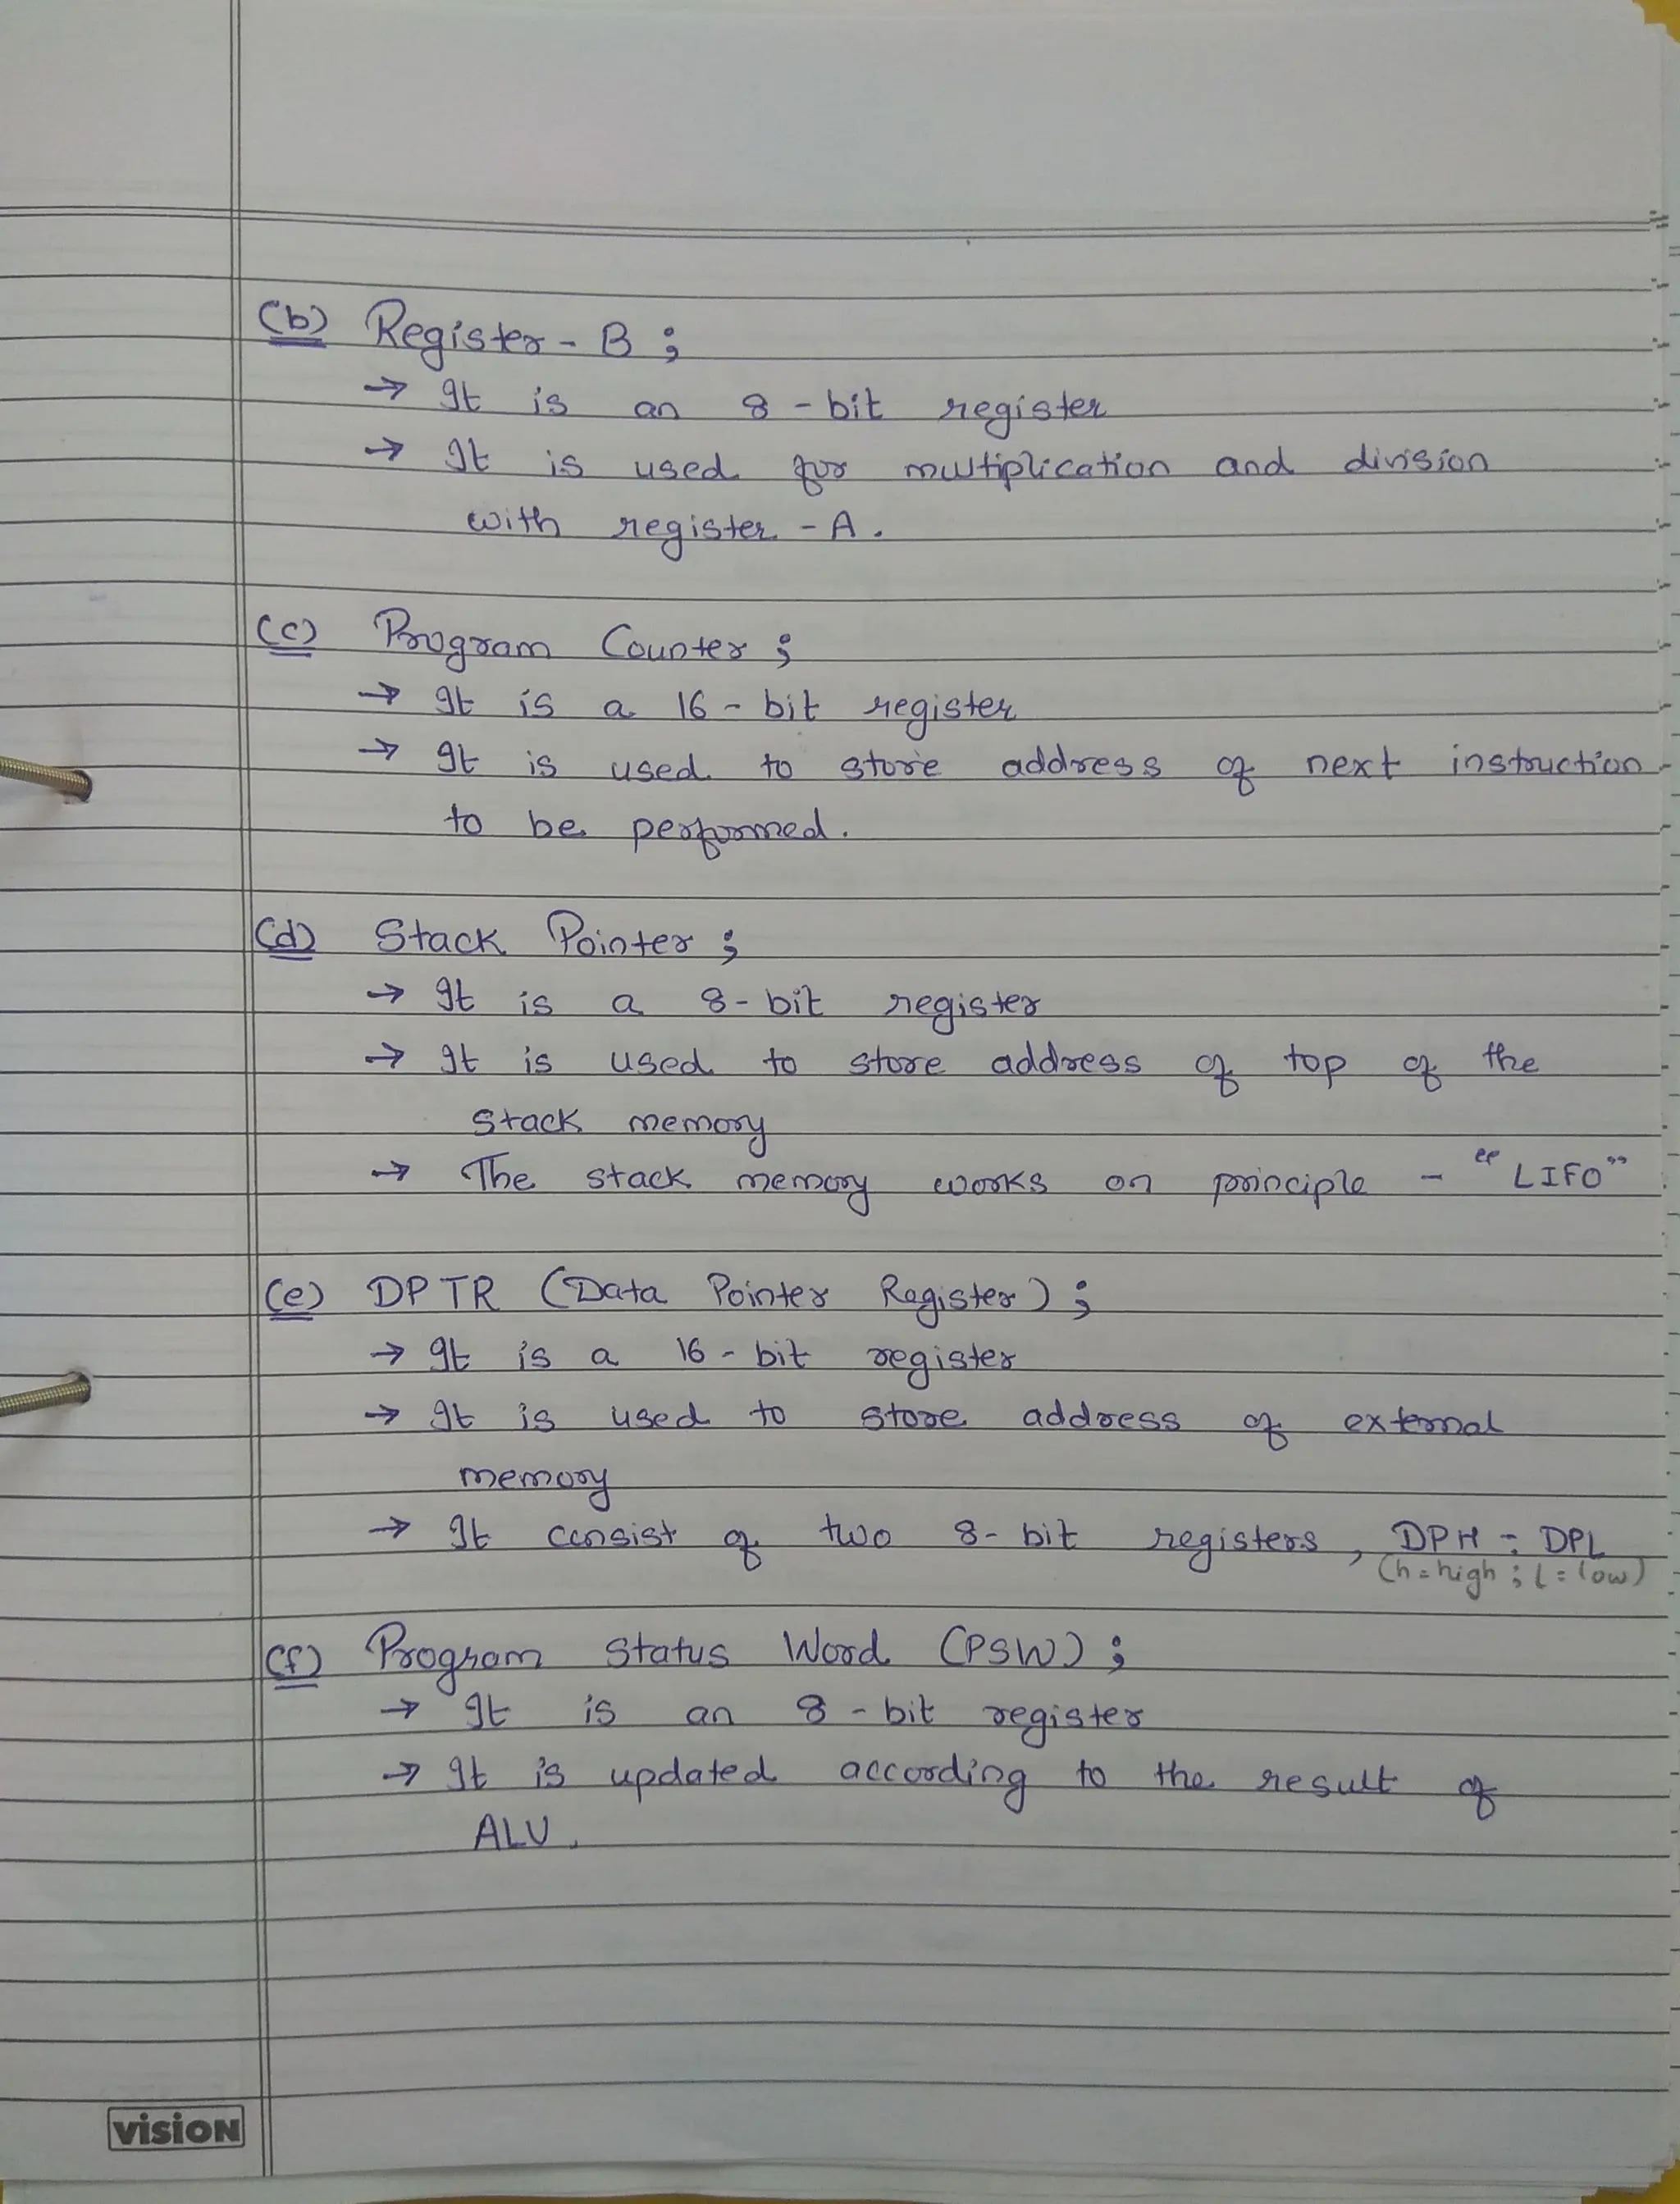 (b) Register - B ;
→ It is an 8 - bit register
→ It is used for multiplication and division
with register - A.
(c) Program Counter ;
→ It is a 16 - bit register
→ It is used to store address of next instruction
to be performed.
(d) Stack Pointer ;
→ It is a 8 - bit register
→ It is used to store address of top of the
stack memory
→ The stack memory works on principle - "LIFO"
(e) DPTR (Data Pointer Register) ;
→ It is a 16 - bit register
→ It is used to store address of external
memory
→ It consist of two 8 - bit registers, DPH : DPL
(h = high ; L = low)
(f) Program Status Word (PSW) ;
→ It is an 8 - bit register
→ It is updated according to the result of
ALU.
vision